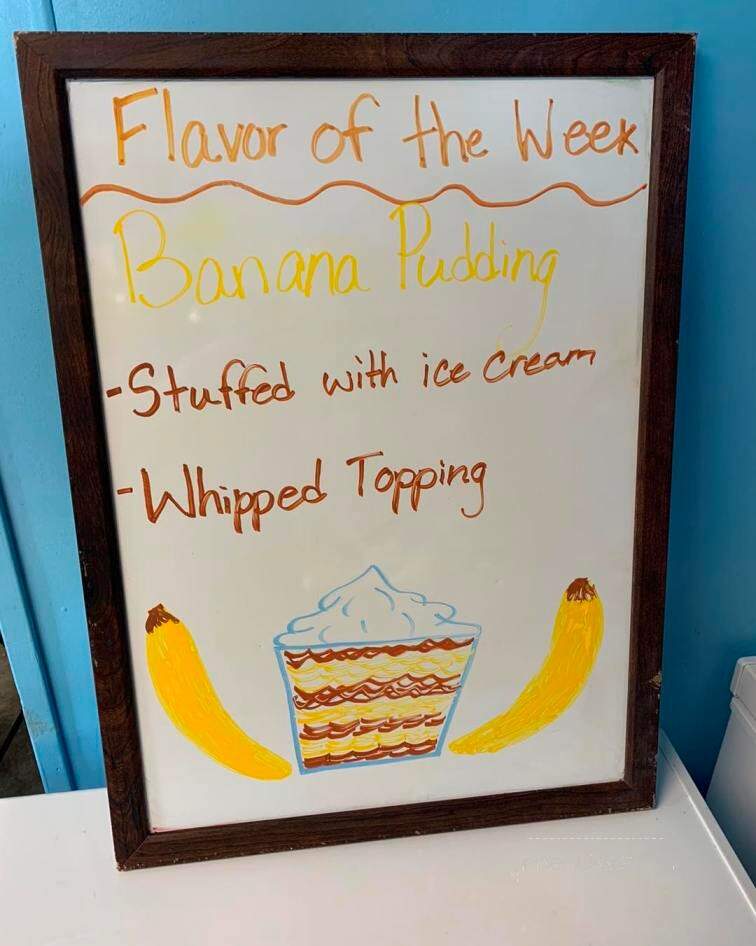 Flavor of the Week
Banana Pudding
-Stuffed with ice cream
-Whipped Topping